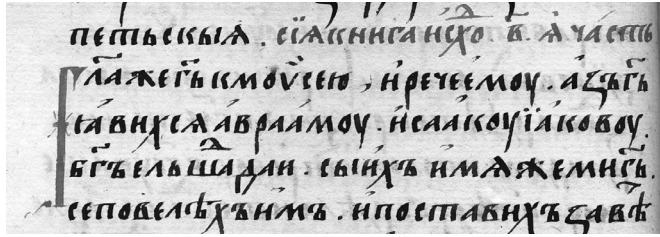 петьскыꙗ . сїꙗ книга исхⷪ҇ . в҃ . ꙗ҆ часть
глаже гь҃ к моѷсею , и҆ рече є҆моу . а҆зъ гь҃
ꙗ҆вихсѧ а҆враа҆моу . и҆саа҆коу ї҆а҆ковоу .
бг҃ъ ельшⷶадаи . сы и҆хъ и҆мѧ же ми гь҃ .
се повелѣхъ и҆мъ . и҆ поставихъ завѣ